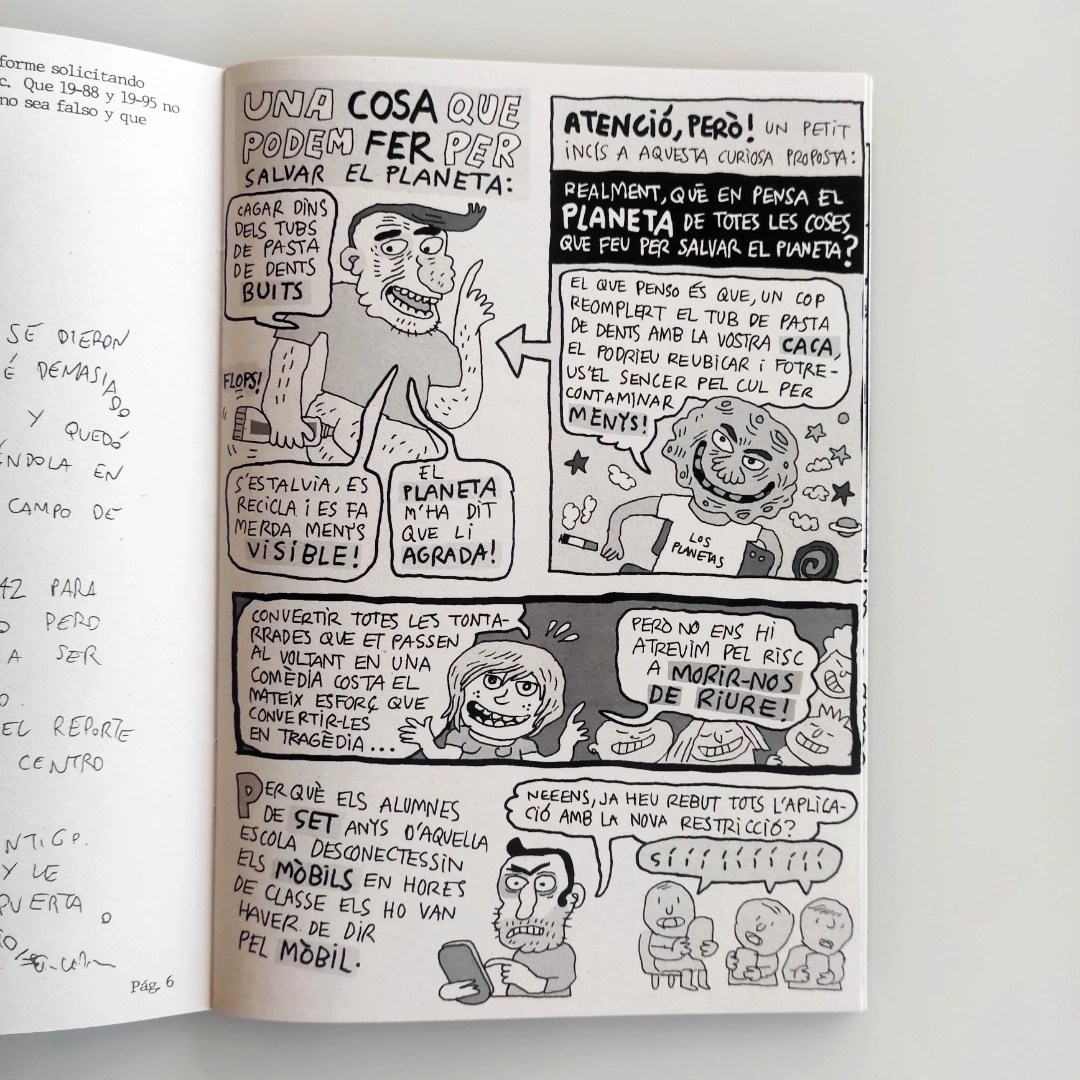 forme solicitando
c. Que 19-88 y 19-95 no
no sea falso y que
SE DIERON
É DEMASIA
DO
Y QUEDÓ
NDOLA EN
CAMPO DE
42 PARA
PERO
A SER
EL REPORTE
CENTRO
NTIGO.
Y LE
PUERTA
Pág. 6
UNA COSA QUE
PODEM FER PER
SALVAR EL PLANETA:
CAGAR DINS
DELS TUBS
DE PASTA
DE DENTS
BUITS
FLOPS!
S'ESTALVIA, ES
RECICLA I ES FA
MERDA MENYS
VISIBLE!
EL
PLANETA
M'HA DIT
QUE LI
AGRADA!
ATENCIÓ, PERÒ! UN PETIT
INCÍS A AQUESTA CURIOSA PROPOSTA:
REALMENT, QUÈ EN PENSA EL
PLANETA DE TOTES LES COSES
QUE FEU PER SALVAR EL PLANETA?
EL QUE PENSO ÉS QUE, UN COP
REOMPLERT EL TUB DE PASTA
DE DENTS AMB LA VOSTRA CACA,
EL PODRÍEU REUBICAR I FOTRE-
US'EL SENCER PEL CUL PER
CONTAMINAR
MENYS!
LOS
PLANETAS
CONVERTIR TOTES LES TONTA-
RRADES QUE ET PASSEN
AL VOLTANT EN UNA
COMÈDIA COSTA EL
MATEIX ESFORÇ QUE
CONVERTIR-LES
EN TRAGÈDIA...
PERÒ NO ENS HI
ATREVIM PEL RISC
A MORIR-NOS
DE RIURE!
PER QUÈ ELS ALUMNES
DE SET ANYS D'AQUELLA
ESCOLA DESCONECTESSIN
ELS MÒBILS EN HORES
DE CLASSE ELS HO VAN
HAVER DE DIR
PEL MÒBIL.
NEEENS, JA HEU REBUT TOTS L'APLICA-
CIÓ AMB LA NOVA RESTRICCIÓ?
SÍÍÍÍÍÍÍÍÍ